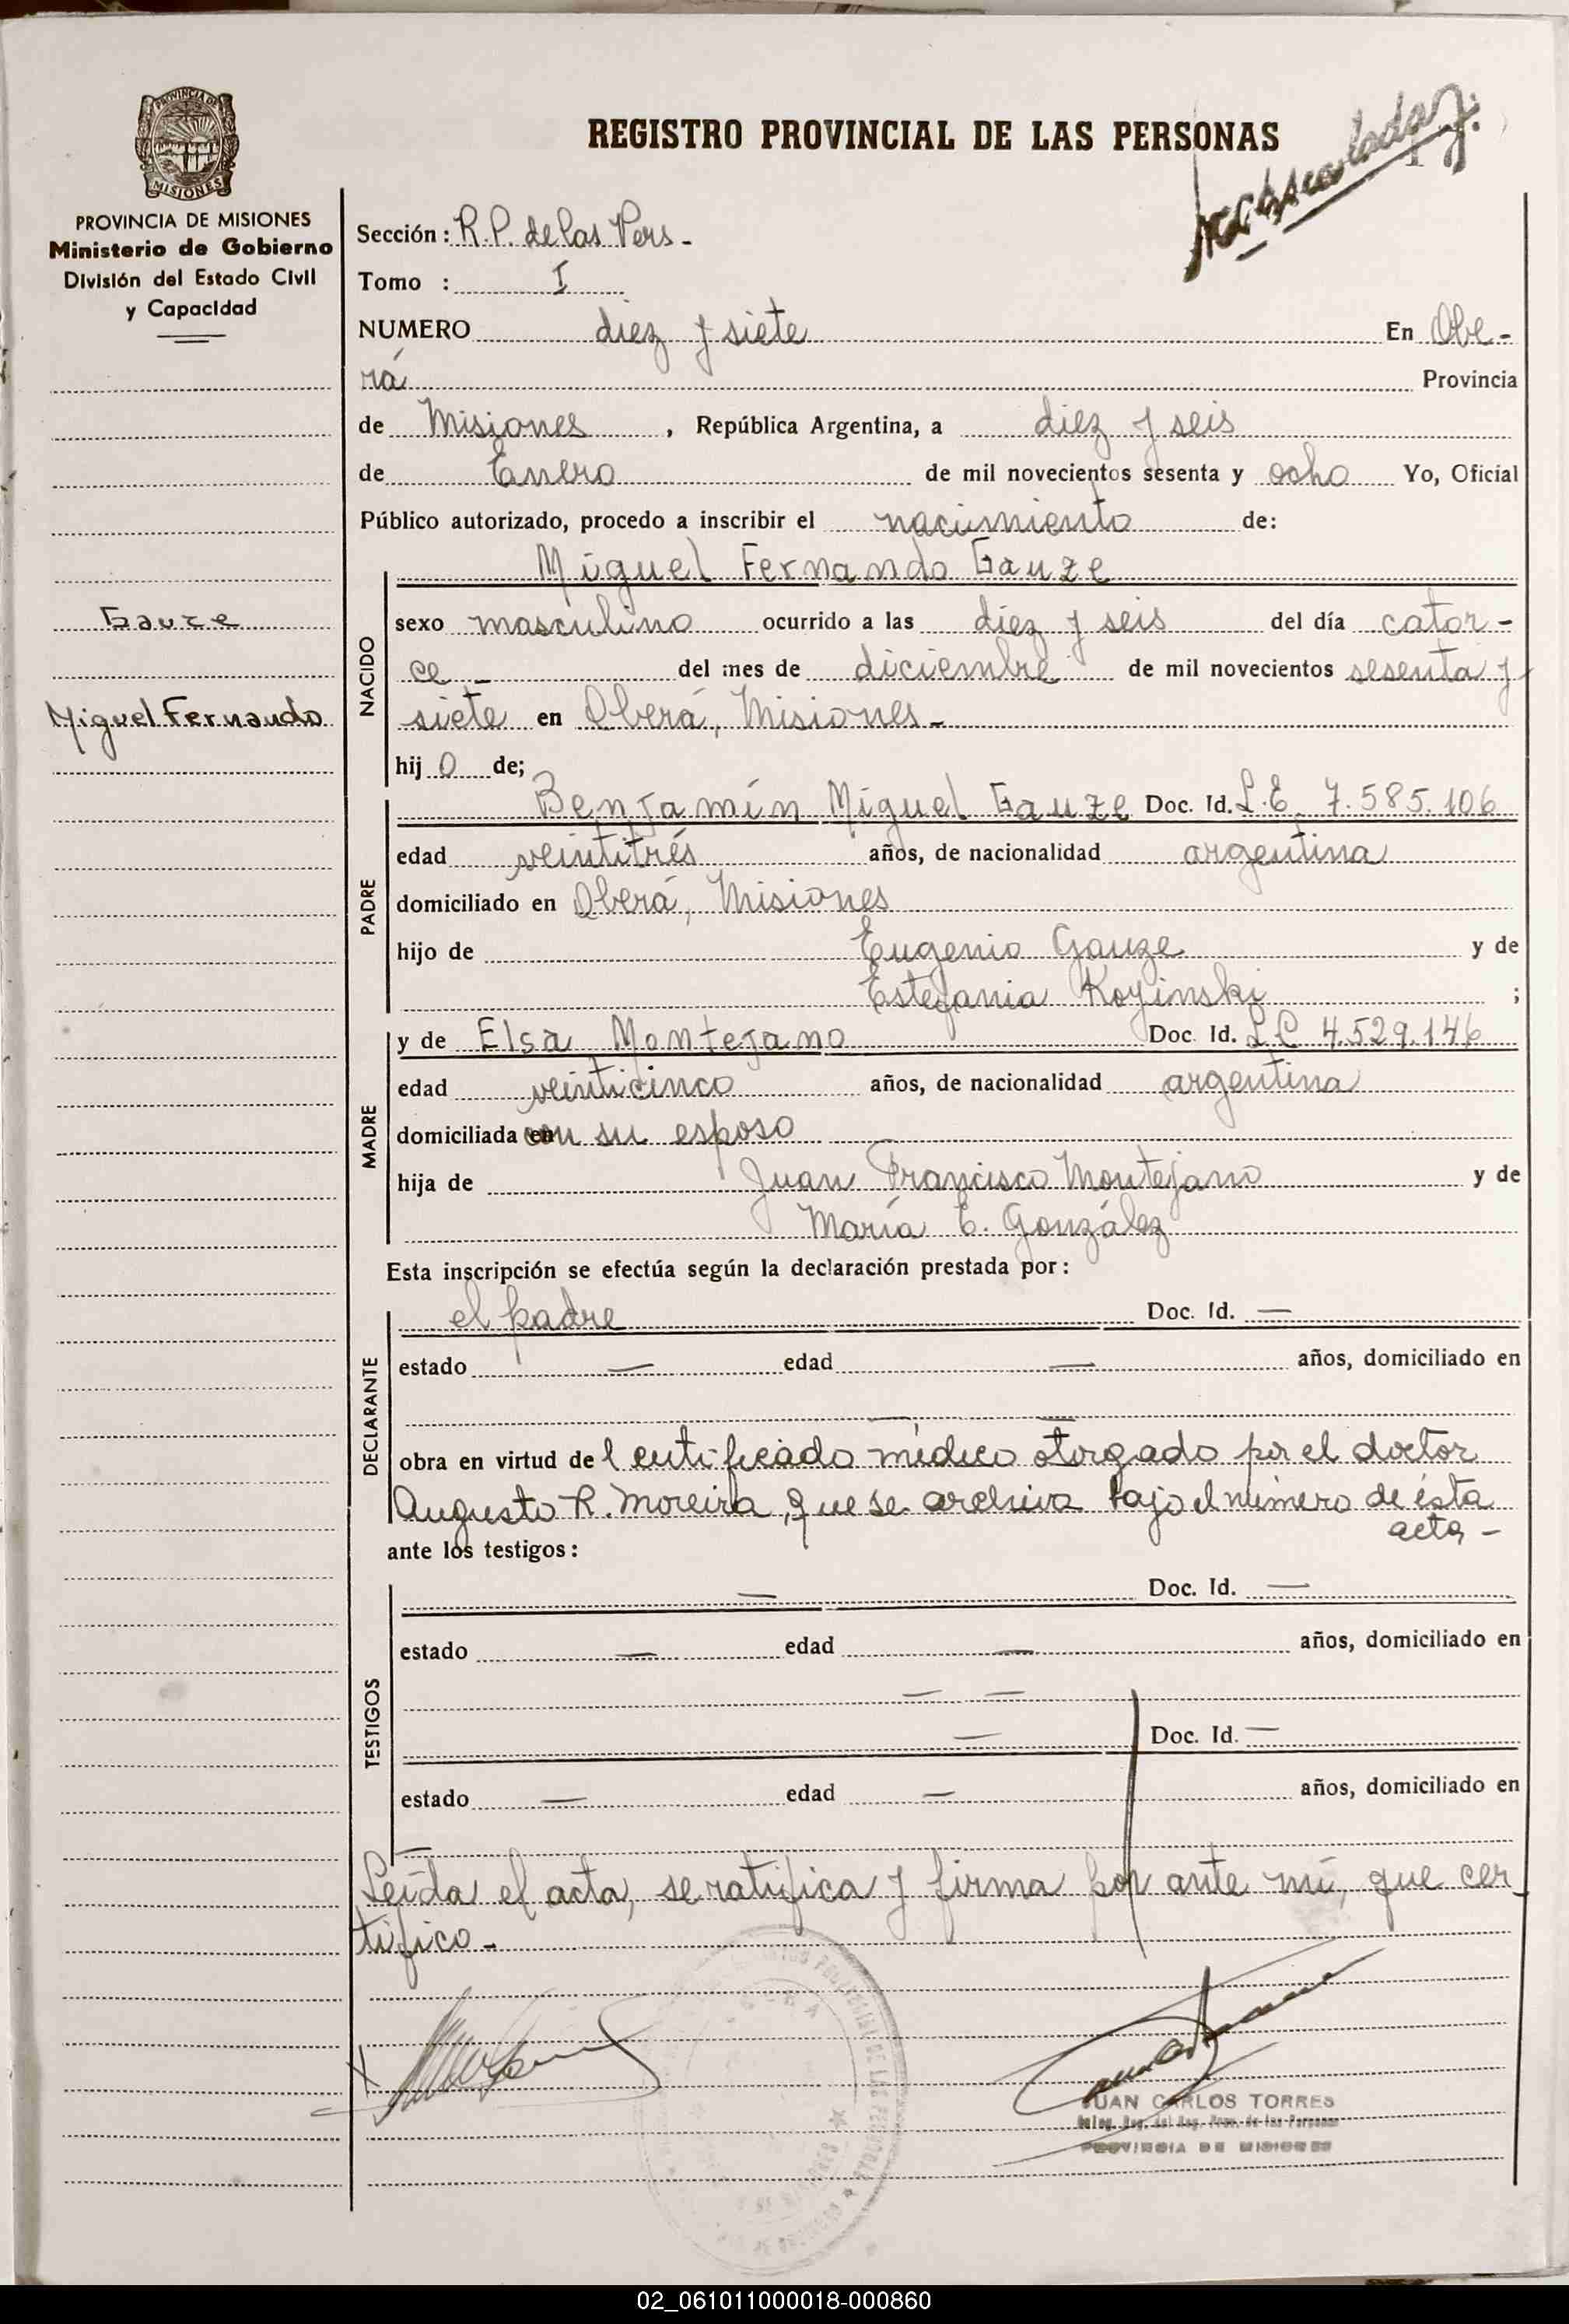 PROVINCIA DE MISIONES
PROVINCIA DE MISIONES
Ministerio de Gobierno
División del Estado Civil
y Capacidad
Gauze
Miguel Fernando
REGISTRO PROVINCIAL DE LAS PERSONAS
Sección: R.P. de las Pers -
Tomo : I
NUMERO diez y siete En Obe-
rá Provincia
de Misiones , República Argentina, a diez y seis
de Enero de mil novecientos sesenta y ocho Yo, Oficial
Público autorizado, procedo a inscribir el nacimiento de:
Miguel Fernando Gauze
NACIDO
sexo masculino ocurrido a las diez y seis del día cator-
ce - del mes de diciembre de mil novecientos sesenta y
siete en Oberá, Misiones -
hij o de;
PADRE
Benjamín Miguel Gauze Doc. Id. L.E. 7.585.106
edad veintitrés años, de nacionalidad argentina
domiciliado en Oberá, Misiones
hijo de Eugenio Gauze y de
Estefania Koyinski ;
MADRE
y de Elsa Montejano Doc. Id. L C 4.529.146
edad veinticinco años, de nacionalidad argentina
domiciliada con su esposo
hija de Juan Francisco Montejano y de
María E. González
Esta inscripción se efectúa según la declaración prestada por:
DECLARANTE
el padre Doc. Id. —
estado — edad — años, domiciliado en
— —
obra en virtud del certificado médico otorgado por el doctor
Augusto R. Moreira, que se archiva bajo el número de ésta
acta -
ante los testigos:
TESTIGOS
— Doc. Id. —
estado — edad — años, domiciliado en
— —
— Doc. Id. —
estado — edad — años, domiciliado en
—
Leída el acta, se ratifica y firma por ante mí, que cer-
tifico -
JUAN CARLOS TORRES
PROVINCIA DE MISIONES
02_061011000018-000860